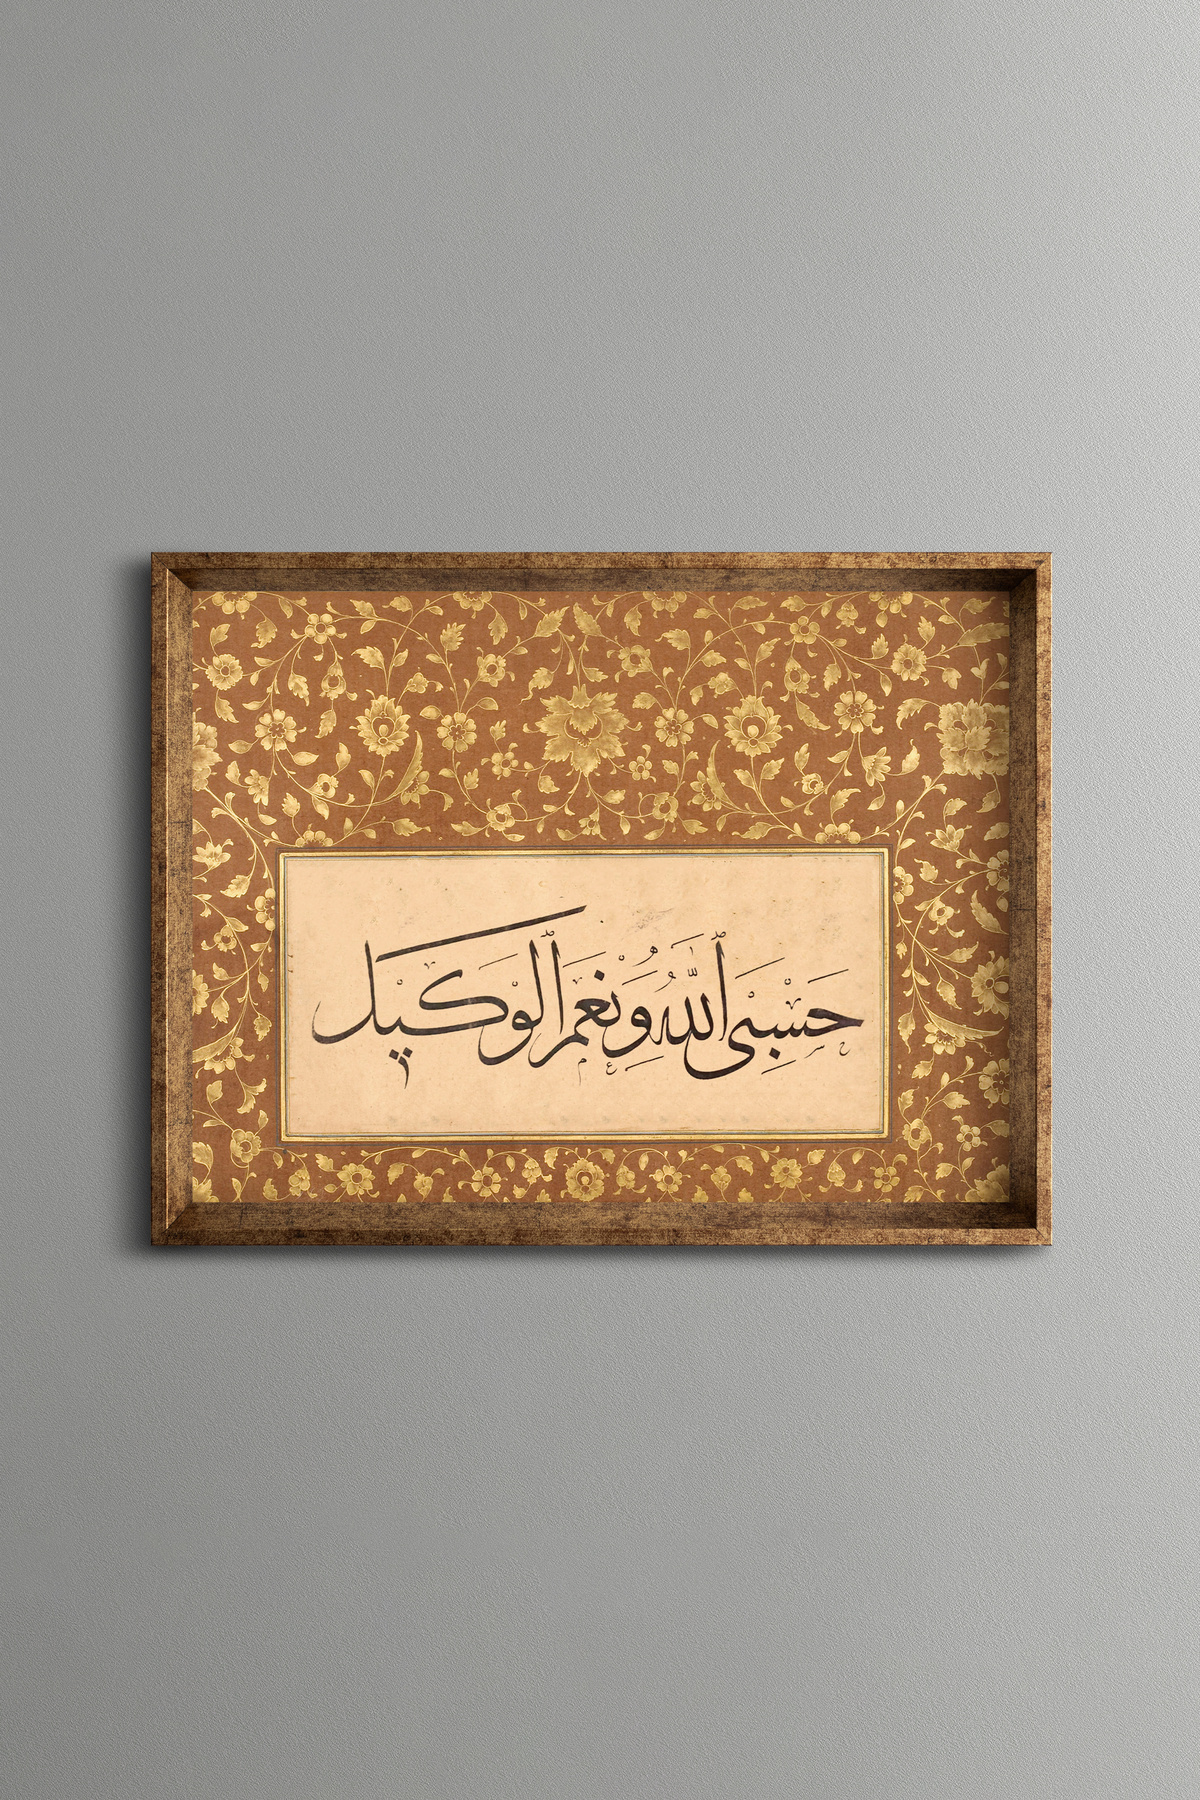 حَسْبِىَ ٱللَّهُ وَنِعْمَ ٱلْوَكِيْلُ